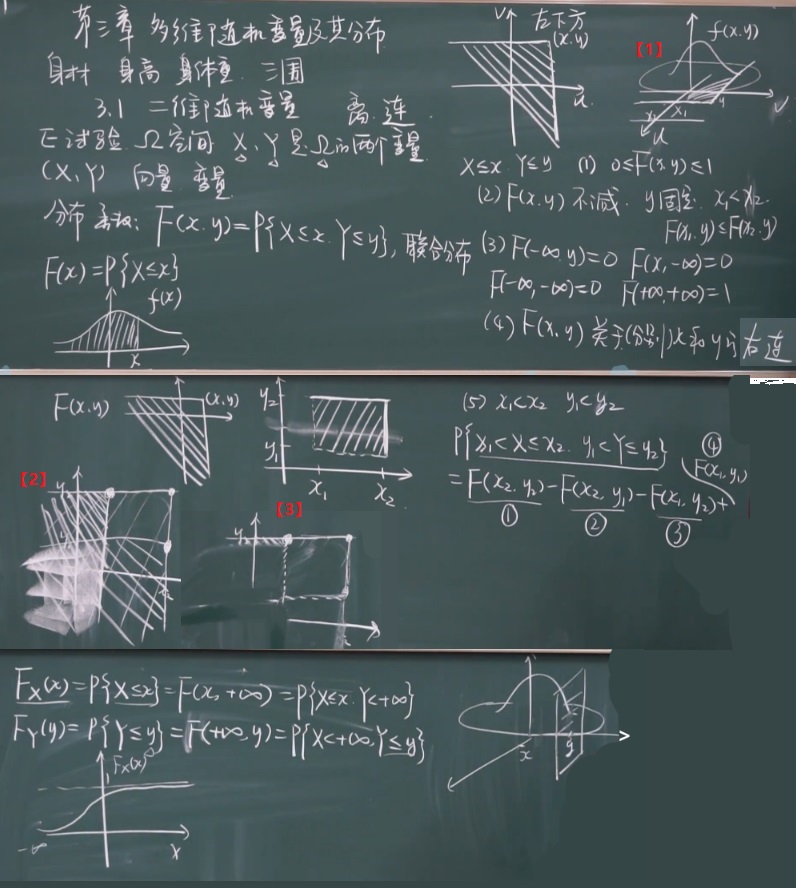 第三章 多维随机变量及其分布
身材 身高 身体重 三围
3.1 二维随机变量 离.连.
E试验 Ω空间 X、Y是Ω的两个变量
(X、Y) 向量 变量
分布函数: F(x.y)=P{X≤x.Y≤y}, 联合分布
F(x)=P{X≤x}
f(x)
x
v 左下方
(x.y)
u.
【1】
f(x.y)
x₁
y
v
u
X≤x Y≤y (1) 0≤F(x.y)≤1
(2) F(x.y) 不减. y固定. x₁<x₂.
F(x₁.y)≤F(x₂.y)
(3) F(-∞.y)=0 F(x,-∞)=0
F(-∞,-∞)=0 F(+∞,+∞)=1
(4) F(x,y) 关于(分别)x和y的右连
F(x.y)
(x.y)
y₂
y₁
x₁ x₂
【2】
【3】
y₂
(5) x₁<x₂ y₁<y₂
P{x₁<X≤x₂. y₁<Y≤y₂}
=F(x₂.y₂)-F(x₂.y₁)-F(x₁.y₂)+
F(x₁,y₁)
① ② ③ ④
F_X(x)=P{X≤x}=F(x,+∞)=P{X≤x.Y<+∞}
F_Y(y)=P{Y≤y}=F(+∞,y)=P{X<+∞,Y≤y}
1 F_X(x)
-∞ x
x y